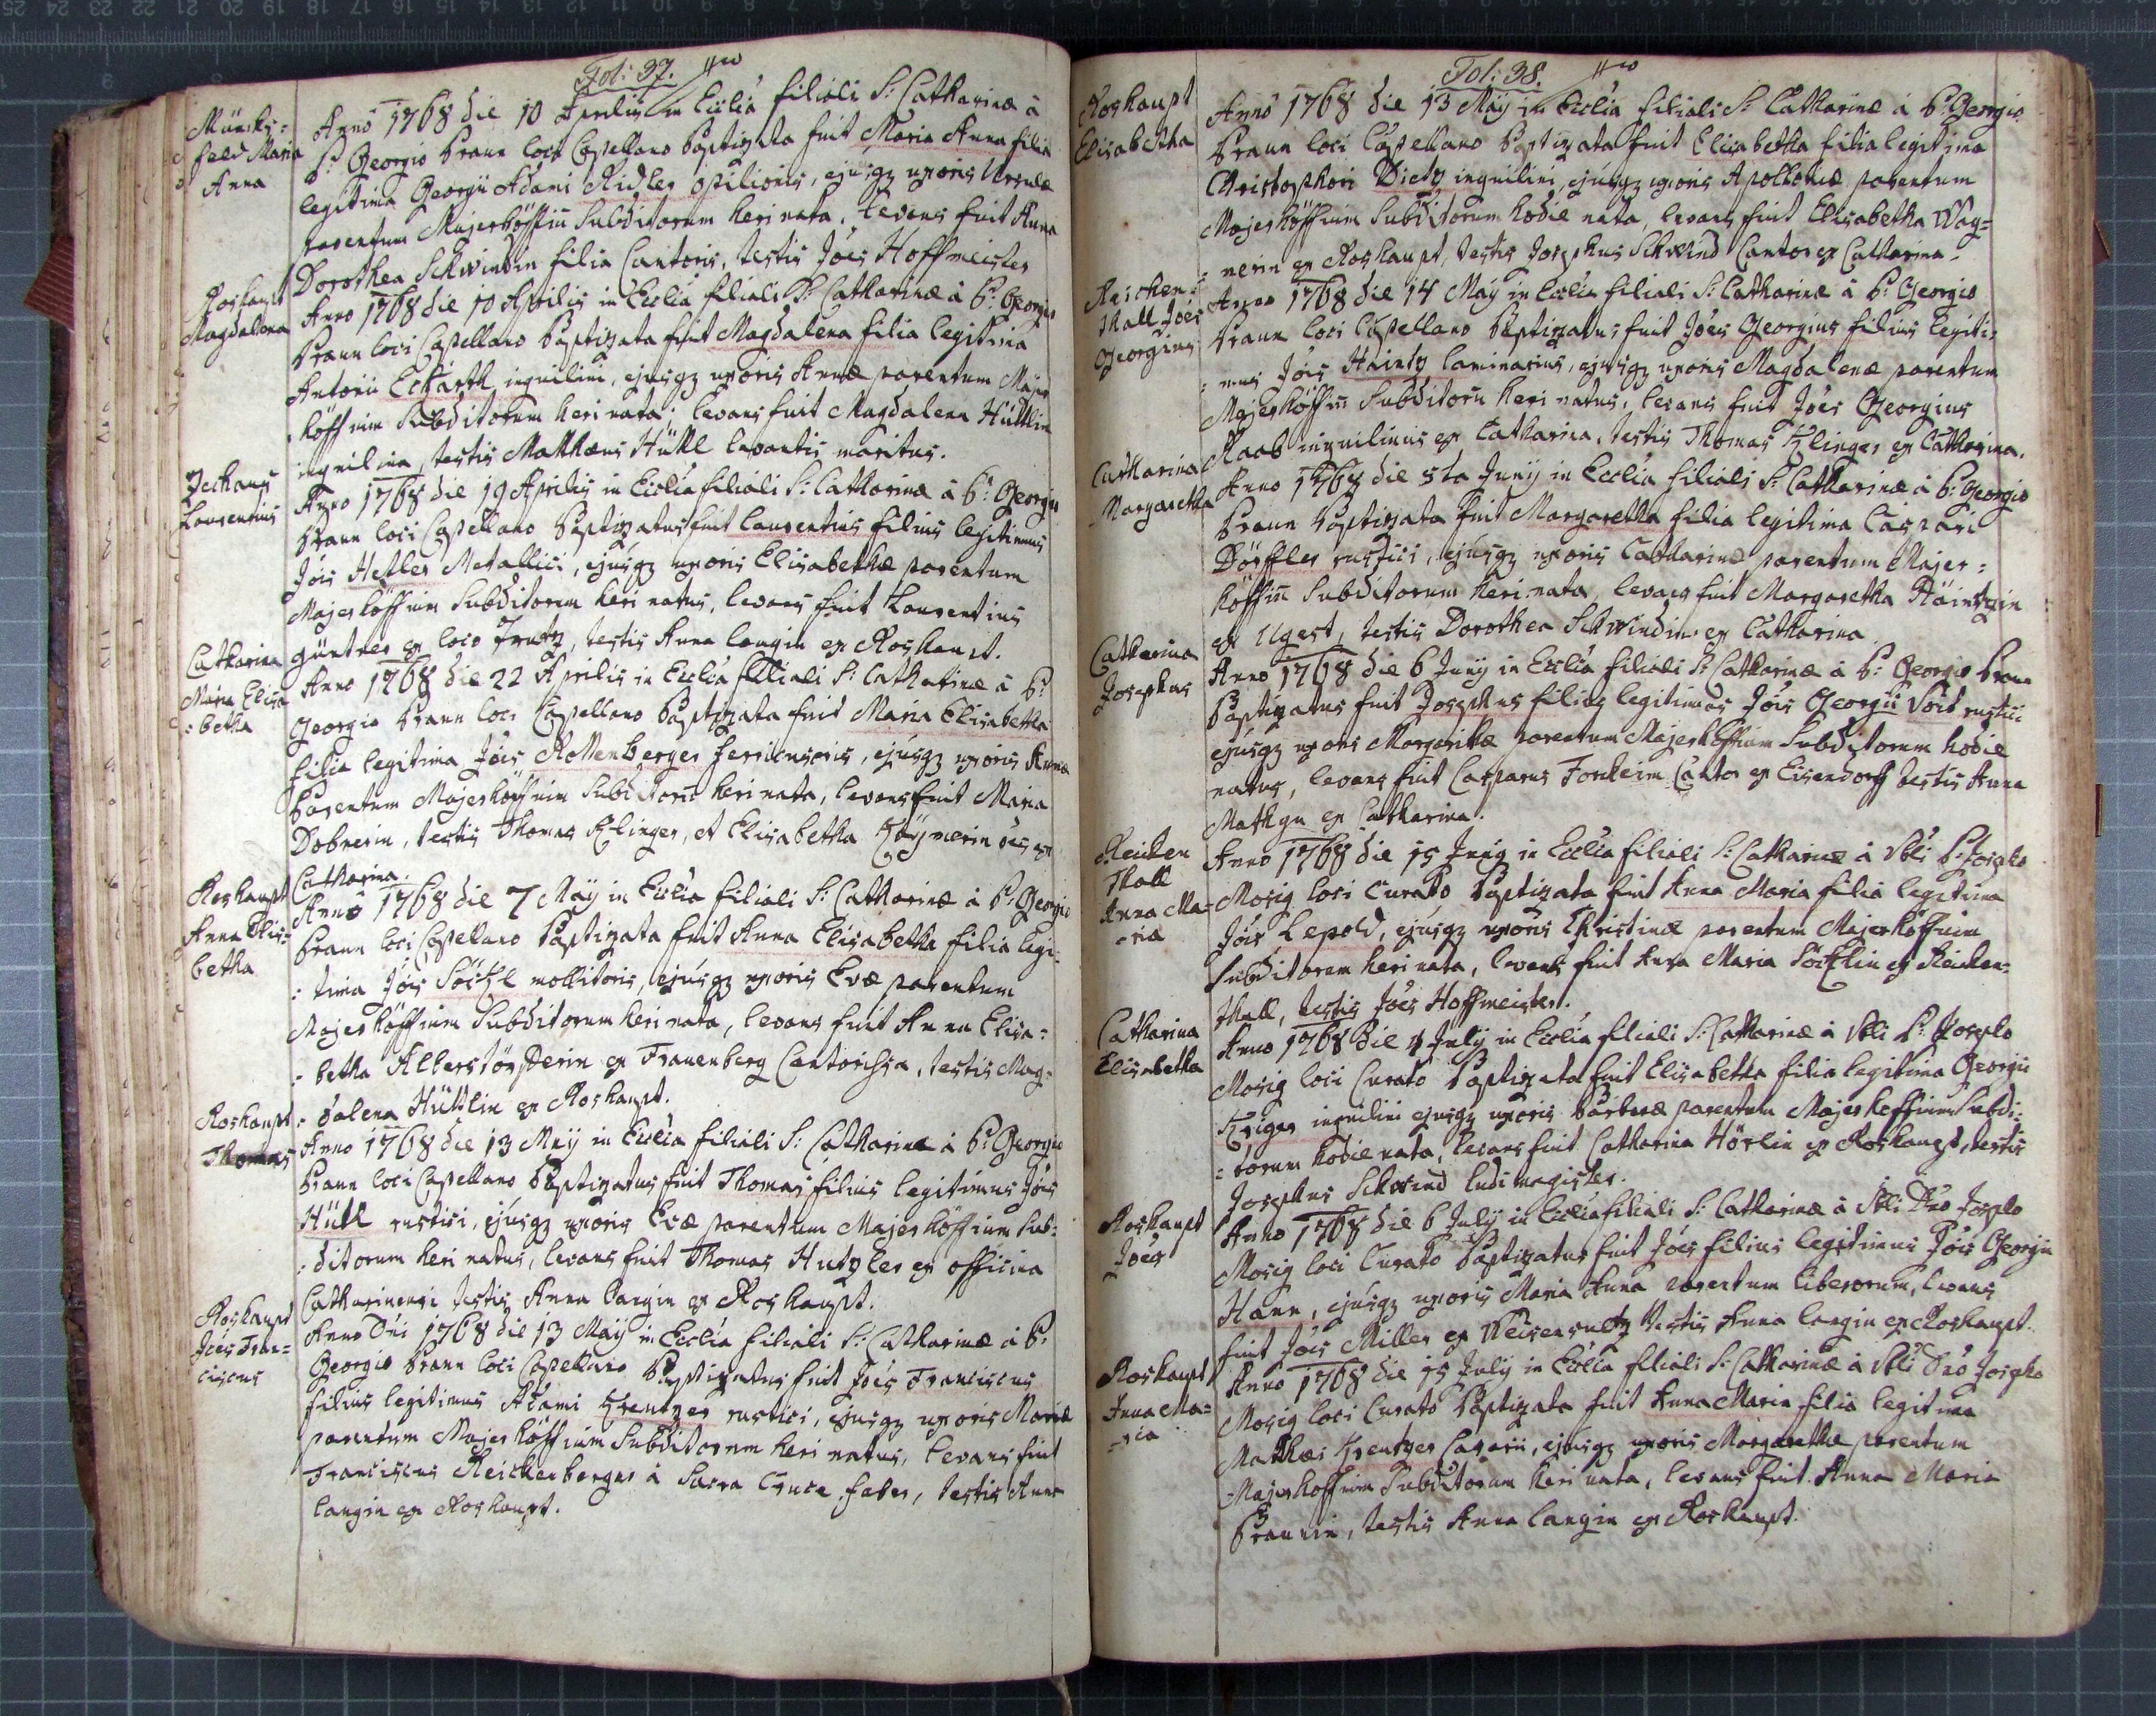 Fol: 37.
Münchs=
feld Maria
Anna
Anno 1768 die 10 Aprilis in Ecclia filiali S: Catharinæ à
P: Georgio Braun loci Capellano baptizata fuit Maria Anna filia
legitima Georgii Adami Ridler opilionis, ejusqz uxoris Ursulæ
parentum Majerhöffiũ Subditorum heri nata, levans fuit Anna
Dorothea Schwindin filia Cantoris, testis Jões Hoffmeister
Roshaupt
Magdalena
Anno 1768 die 10 Aprilis in Ecclia filiali S: Catharinæ à P: Georgio
Braun loci Capellano baptizata fuit Magdalena filia legitima
Antonii Eckharth inquilini, ejusqz uxoris Annæ parentum Majer
höffnim Subditorum heri nata; levans fuit Magdalena Hüttlin
inquilina, testis Matthæus Hüttl levantis maritus.
Zechaus
Laurentius
Anno 1768 die 19 Aprilis in Ecclia filiali S: Catharinæ à P: Georgio
Braun loci Capellano baptizatus fuit Laurentius filius legitimus
Jõis Hetler Metallici, ejusqz uxoris Elisabethæ parentum
Majerhöffnim Subditorum heri natus, levans fuit Laurentius
güntner ex loco , testis Anna Langin ex Roshaupt.
Catharina
Maria Elisa
:betha
Anno 1768 die 22 Aprilis in Ecclia filiali S: Catharinæ à P:
Georgio Braun loci Capellano baptizata fuit Maria Elisabetha
filia legitima Jõis Rottenberger , ejusqz uxoris Annæ
parentum Majerhöffnim Subditorũ heri nata, levans fuit Maria
Dobnerin, testis Thomas Klinger, et Elisabetha ex
Catharina.
Roshaupt
Anna Elis=
betha
Anno 1768 die 7 Maÿ in Ecclia filiali S: Catharinæ à P: Georgio
Braun loci Capellano baptizata fuit Anna Elisabetha filia legi:
:tima Jõis Söckl mollitoris, ejusqz uxoris Evæ parentum
Majerhöffnim Subditorum heri nata, levans fuit Anna Elisa:
:betha Alberstörfferin ex Frauenberg Cantorissa, testis Mag:
:dalena Hüttlin ex Roshaupt.
Roshaupt
Thomas
Anno 1768 die 13 Maÿ in Ecclia filiali S: Catharinæ à P: Georgio
Braun loci Capellano baptizatus fuit Thomas filius legitimus Jõis
Hüttl rustici, ejusqz uxoris Evæ parentum Majerhöffnim Sub:
:ditorum heri natus, levans fuit Thomas Hutzler ex officina
Catharinensi testis Anna Langin ex Roshaupt.
Roshaupt
Jões Fran=
ciscus
Anno Dni 1768 die 13 Maÿ in Ecclia filiali S: Catharinæ à P:
Georgio Braun loci Capellano baptizatus fuit Jões Franciscus
filius legitimus Adami Kreutzer rustici, ejusqz uxoris Mariæ
parentum Majerhöffnim Subditorum heri natus, levans fuit
Franciscus Reichenberger à Sacra Cruce faber, testis Anna
Langin ex Roshaupt.
Fol: 38.
Roshaupt
Elisabetha
Anno 1768 die 13 Maÿ in Ecclia filiali S: Catharinæ à P: Georgio
Braun loci Capellano baptizata fuit Elisabetha filia legitima
Christophori Dietz inquilini, ejusqz uxoris Apolloniæ parentum
Majerhöffnim Subditorum hodie nata, levans fuit Elisabetha Wag=
:nerin ex Roshaupt, testis Josephus Schwind Cantor ex Catharina.
Reichen=
thall Jões
Georgius
Anno 1768 die 14 Maÿ in Ecclia filiali S: Catharinæ à P: Georgio
Braun loci Capellano baptizatus fuit Jões Georgius filius legiti:
:mus Jõis Haintz laminarius, ejusqz uxoris Magdalenæ parentum
Majerhöffiñ Subditorũ heri natus, levans fuit Jões Georgius
Raab inquilinus ex Catharina, testis Thomas Klinger ex Catharina.
Catharina
Margaretha
Anno 1768 die 5ta Junÿ in Ecclia filiali S: Catharinæ à P: Georgio
Braun baptizata fuit Margaretha filia legitima Caspari
Dörffler rustici, ejusqz uxoris Catharinæ parentum Majer:
höffiñ Subditorum heri nata, levans fuit Margaretha Haintzin
ex Ugest, testis Dorothea Schwindin ex Catharina.
Catharina
Josephus
Anno 1768 die 6 Junÿ in Ecclia filiali S: Catharinæ à P: Georgio Braun
baptizatus fuit Josephus filius legitimus Jõis Georgii Voit rustici
ejusqz uxoris Margarithæ parentum Majerhöffnim Subditorum hodie
natus, levans fuit Casparus Forcheim Cantor ex Eisendorff testis Anna
ex Catharina.
Reichen
Thall
Anna Ma=
:ria
Anno 1768 die 15 Junÿ in Ecclia filiali S: Catharinæ à P: Josepho
Mosig loci Curato baptizata fuit Anna Maria filia legitima
Jõis Lepold, ejusqz uxoris Christinæ parentum Majerhöffnim
Subditorum heri nata, levans fuit Anna Maria Söcklin ex Reichen=
thall, testis Jões Hoffmeister.
Catharina
Elisabetha
Anno 1768 die 4 Julÿ in Ecclia filiali S: Catharinæ à P: Josepho
Mosig loci Curato baptizata fuit Elisabetha filia legitima Georgii
Kriger inquilini ejusqz uxoris Barbaræ parentum Majerhöffnim Subdi:
:torum hodie nata, levans fuit Catharina Hörlin ex Roshaupt, testis
Josephus Schwind ludimagister.
Roshaupt
Jões
Anno 1768 die 6 Julÿ in Ecclia filiali S: Catharinæ à Dno Josepho
Mosig loci Curato baptizatus fuit Jões filius legitimus Jõis Georgii
Hann, ejusqz uxoris Maria Anna parentum liberorum, levans
fuit Jões Miller ex testis Anna Langin ex Roshaupt.
Roshaupt
Anna Ma=
=ria
Anno 1768 die 15 Julÿ in Ecclia filiali S: Catharinæ à Dno Josepho
Mosig loci Curato baptizata fuit Anna Maria filia legitima
Matthæi Kreutzer , ejusqz uxoris Margarethæ parentum
Majerhöffnim Subditorum heri nata, levans fuit Anna Maria
Braunin, testis Anna Langin ex Roshaupt.